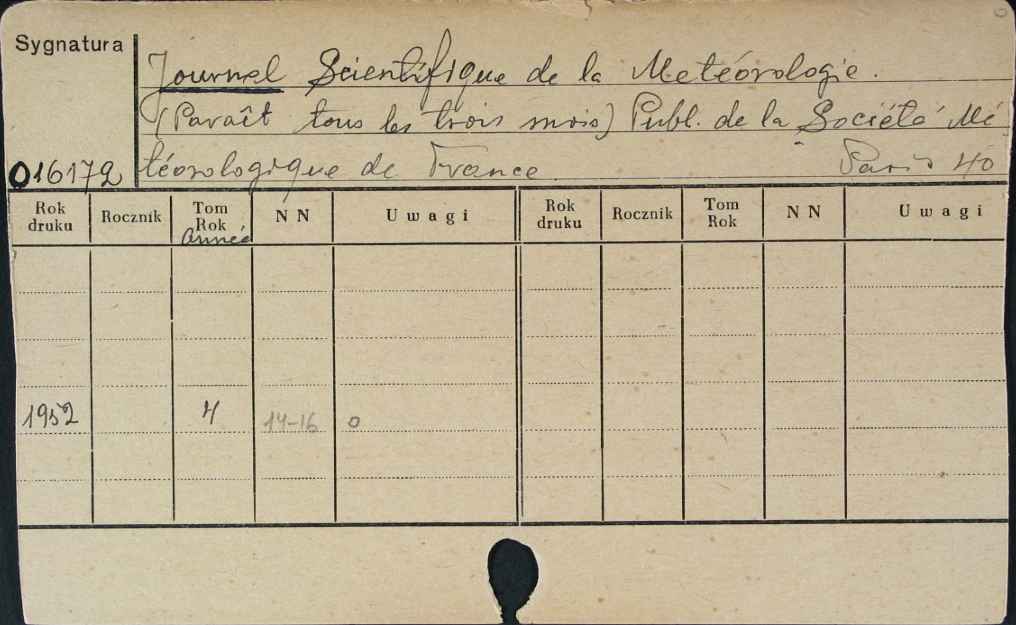 Sygnatura
Journal Scientifique de la Metéorologie.
(Paraît tous les trois mois) Publ. de la Société Mé
016172 téorologique de France. Paris 40
Rok druku Rocznik Tom Rok Année NN Uwagi Rok druku Rocznik Tom Rok NN Uwagi
1952 4 14-16 o